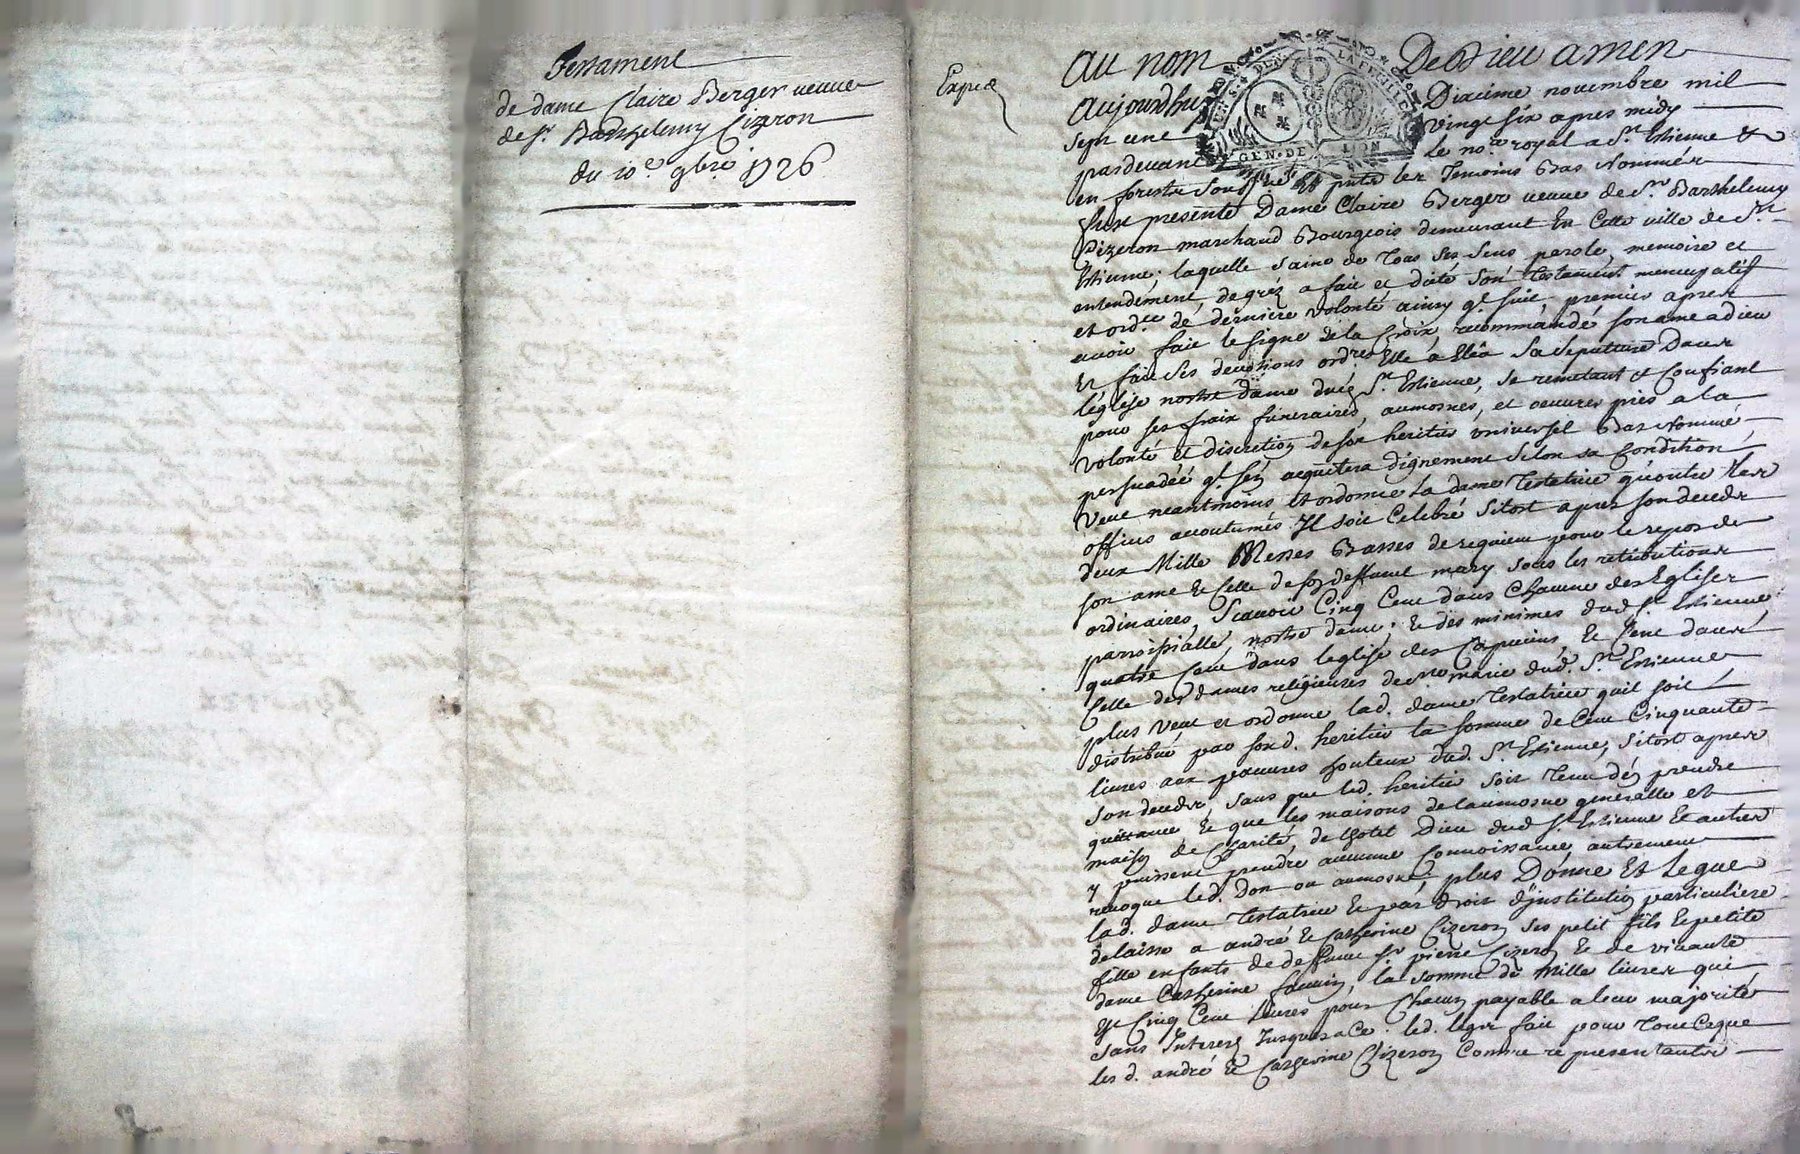 Testament
de dame Claire Berger veuve
de Sr. Barthelemy Cizeron
du 10e. 9bre 1726
Expiée
au nom De Dieu amen
aujourdhuy Dixième novembre mil
sept cent vingt six apres midy
pardevant le nore royal a St. Estienne
en forestz sousné et puis les Temoins Bas Nommés
fust presente Dame Claire Berger veuve de Sr. Barthelemy
Cizeron marchand Bourgeois demeurant En Cette ville de St
Estienne; laquelle saine de Tous ses sens parole, memoire et
entendement, de grez a fait et dicté son testament noncupatif
et ordce de dernière volonté ainsy ql. suit, premier apres
avoir fait le signe de la Croix recommandé son ame a dieu
Et fait ses devotions ordres Elle à Eleu Sa Sepulture Dans
l'église nostre dame dud. St. Estienne, se remettant et Confiant
pour ses fraix funeraires, aumosnes, et oeuvres pies a la
volonté et discretion de son heritier universel Bas Nommé,
persuadée ql. s'en acquitera dignement selon sa Condition,
veut neantmoins et ordonne la dame Testatrice qu'outre les
offices accoutumés Il soit Celebré sitost apres son decedz
deux Mille Messes Basses de requiem pour le repos de
son ame et Celle de son deffunct mary sous les retributions
ordinaires, Scavoir Cinq Cent dans Chacune des Eglises
parroissialle, nostre dame, et des minimes dud St. Estienne,
quatre Cent dans leglise des Capucins, et Cent dans
Celle des dames religieuses de ste marie dud. St. Estienne
plus veut et ordonne lad. dame Testatrice quil soit
distribué par son d. heritier la somme de Cent Cinquante
livres aux pauvres honteux dud. St. Estienne, sitost apres
son decedz, sans que led. heritier soit Tenu d'en prendre
quittance et que les maisons de laumosne generalle et
maison de Charité, de lhotel Dieu dud St. Estienne Et autres
y puissent prendre aucune Connoissance autrement
revoque led. Don ou aumosne, plus Donne Et Legue
lad. dame Testatrice et par droit d'institution particuliere
delaisse a andré et Catherine Cizeron ses petit fils et petite
fille enfants de deffunct Sr. pierre Cizeron et de vivante
dame Catherine, la somme de Mille livres qui
Est Cinq Cent livres pour Chacun payable a leur majorité
sans Interest Jusques a Ce. led. legs fait pour Tout Ce que
les d. andré et Catherine Cizeron Comme representants
GEN. DE LION